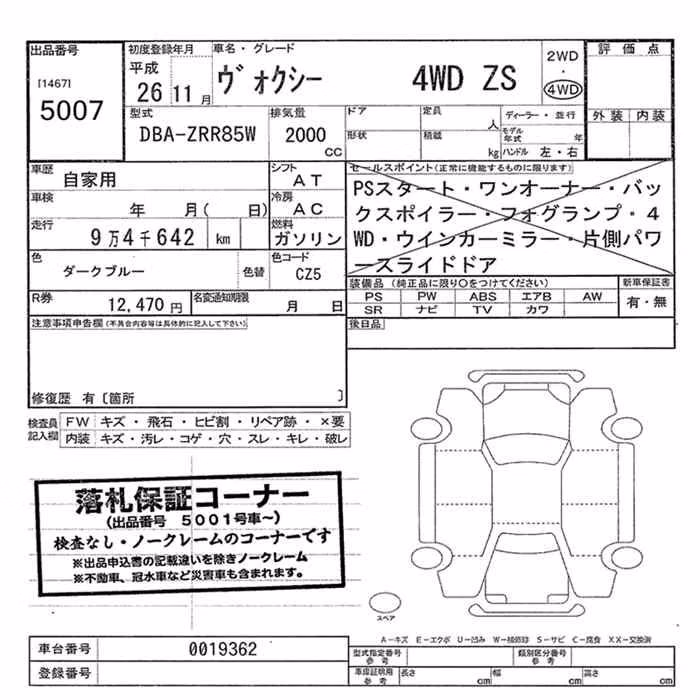 出品番号
[1467]
5007
初度登録年月
平成
26 11 月
車名・グレード
ヴォクシー 4WD ZS
2WD
・
4WD
評価点
外装 内装
型式
DBA-ZRR85W
排気量
2000
CC
ドア
定員
人
形状
積載
kg
ディーラー・並行
モデル年式 年
ハンドル 左・右
車歴
自家用
シフト
AT
車検
年 月( 日)
冷房
AC
走行
9万4千642 km
燃料
ガソリン
色
ダークブルー
色替
色コード
CZ5
セールスポイント(正常に機能するものに限ります)
PSスタート・ワンオーナー・バッ
クスポイラー・フォグランプ・4
WD・ウインカーミラー・片側パワ
ースライドドア
R券
12,470 円
名変通知期限
月 日
装備品 (純正品に限り〇をつけてください)
PS PW ABS エアB AW
SR ナビ TV カワ
新車保証書
有・無
注意事項申告欄(不具合内容等は具体的に記入して下さい)
後日品
修復歴 有〔箇所 〕
検査員記入欄
FW キズ・飛石・ヒビ割・リペア跡・×要
内装 キズ・汚レ・コゲ・穴・スレ・キレ・破レ
落札保証コーナー
(出品番号 5001号車～)
検査なし・ノークレームのコーナーです
※出品申込書の記載違いを除きノークレーム
※不動車、冠水車など災害車も含まれます。
スペア
A－キズ E－エクボ U－凹み W－補修跡 S－サビ C－腐食 XX－交換済
車台番号
0019362
登録番号
型式指定番号
参考
類別区分番号
参考
車庫証明用
参考
長さ cm
幅 cm
高さ cm